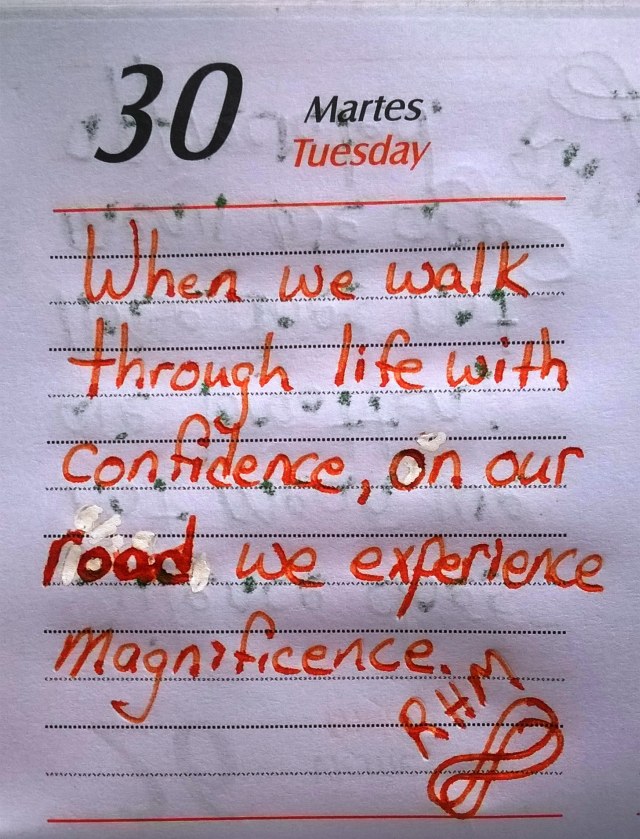 30
Martes
Tuesday
When we walk
through life with
confidence, on our
road we experience
magnificence.
RHM